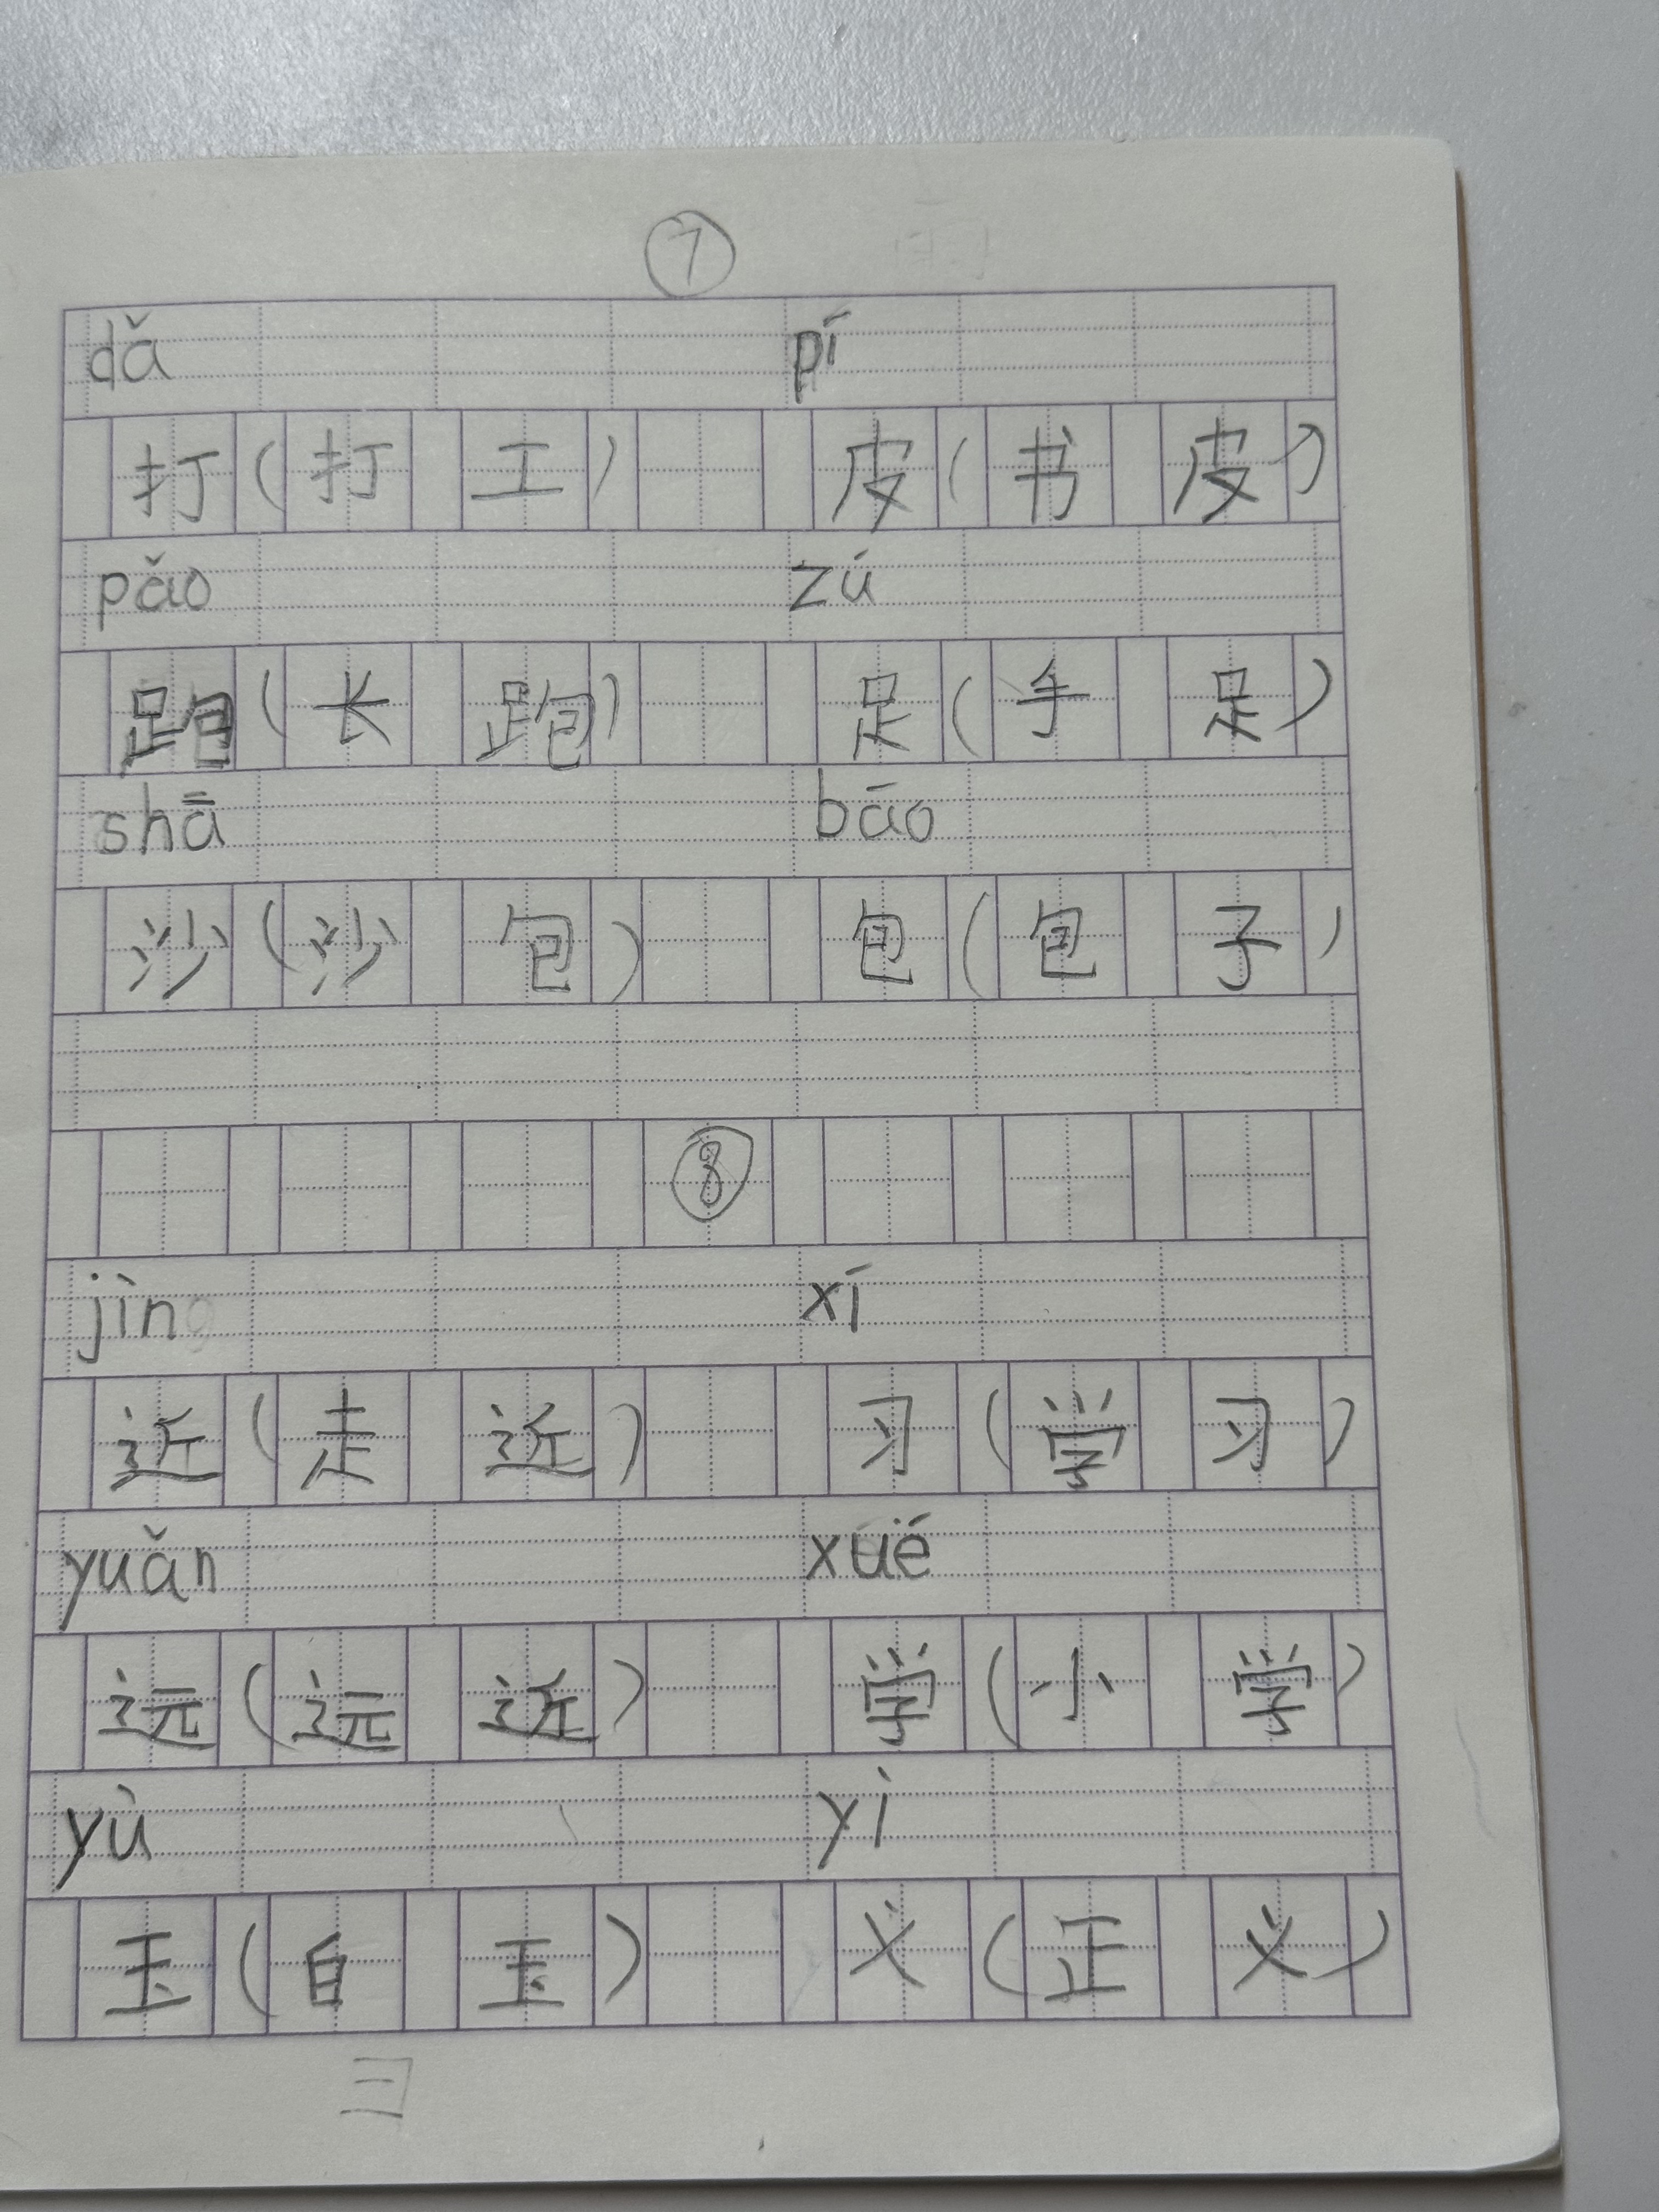 ⑦
dǎ pí
打(打工) 皮(书皮)
pǎo zú
跑(长跑) 足(手足)
shā bāo
沙(沙包) 包(包子)
⑧
jìn xí
近(走近) 习(学习)
yuǎn xué
远(远近) 学(小学)
yù yì
玉(白玉) 义(正义)